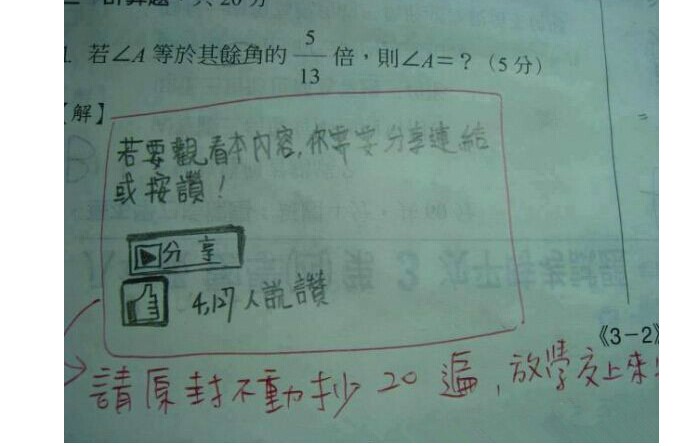 計算題：共20分
1. 若∠A 等於其餘角的 5/13 倍，則∠A＝？（5分）
【解】
若要觀看本內容，你需要分享連結
或按讚！
分享
4,127人說讚
《3－2》
請原封不動抄20遍，放學交上來！